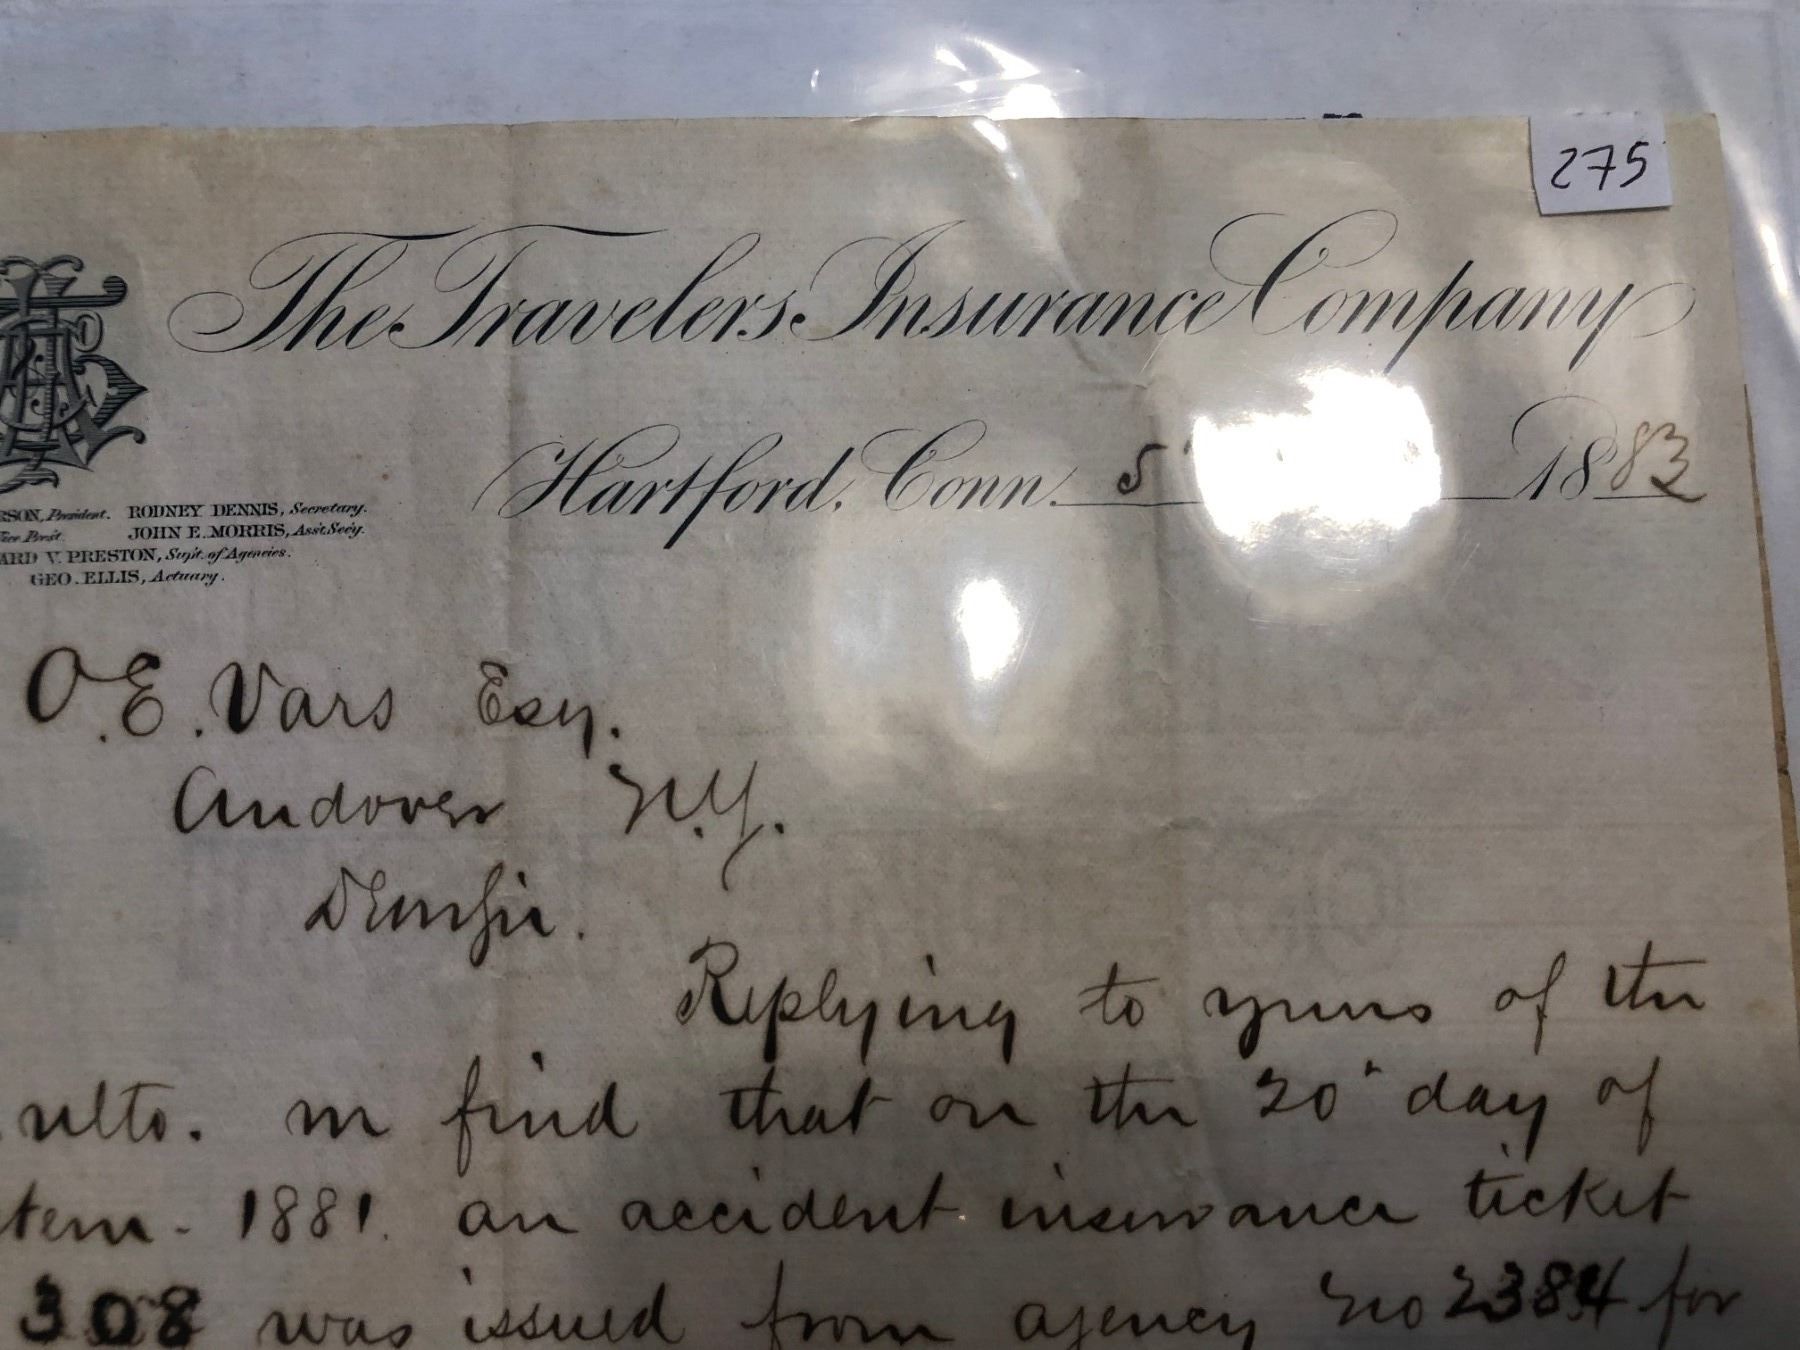 275
The Travelers Insurance Company
Hartford, Conn. 5 1883
RSON, President. RODNEY DENNIS, Secretary.
Vice Prest. JOHN E. MORRIS, Ass't Sec'y.
ARD V. PRESTON, Sup't. of Agencies.
GEO. ELLIS, Actuary.
O. E. Vars Esq.
Andover N.Y.
Dear Sir.
Replying to yours of the
ulto. we find that on the 20" day of
tem - 1881. an accident insurance ticket
308 was issued from agency No 2384 for